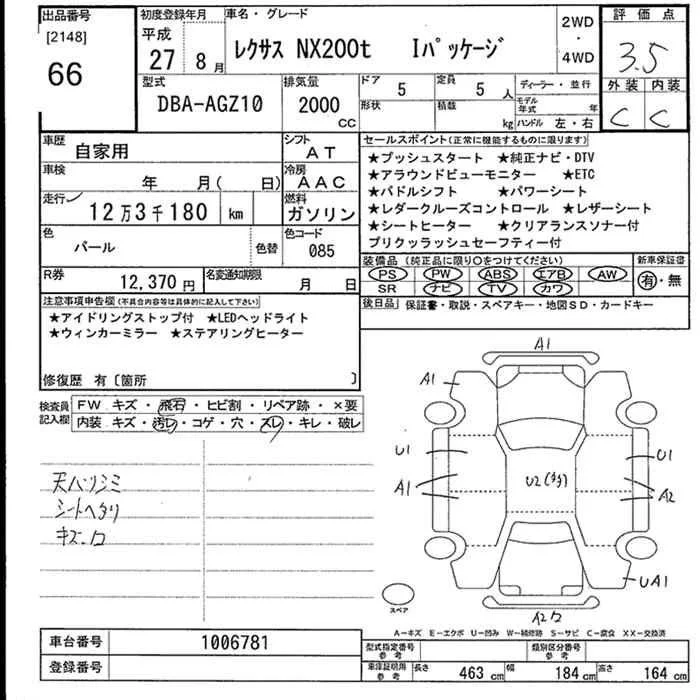 出品番号
[2148]
66
初度登録年月
平成
27 8月
車名・グレード
レクサス NX200t Iパッケージ
2WD
・
4WD
評価点
3.5
外装 内装
C C
型式
DBA-AGZ10
排気量
2000
CC
ドア 5
定員 5 人
形状
積載 kg
ディーラー・並行
モデル年式 年
ハンドル 左・右
車歴
自家用
シフト
AT
車検
年 月( 日)
冷房
AAC
走行
12万3千180 km
燃料
ガソリン
色
パール
色替
色コード
085
R券
12,370円
名変通知期限
月 日
セールスポイント(正常に機能するものに限ります)
★プッシュスタート ★純正ナビ・DTV
★アラウンドビューモニター ★ETC
★パドルシフト ★パワーシート
★レダークルーズコントロール ★レザーシート
★シートヒーター ★クリアランスソナー付
プリクッラッシュセーフティー付
装備品(純正品に限り○をつけてください)
PS PW ABS エアB AW
SR ナビ TV カワ
新車保証書
有・無
後日品 保証書・取説・スペアキー・地図SD・カードキー
注意事項申告欄(不具合内容等は具体的に記入して下さい)
★アイドリングストップ付 ★LEDヘッドライト
★ウィンカーミラー ★ステアリングヒーター
修復歴 有〔箇所 〕
検査員記入欄
FW キズ・飛石・ヒビ割・リペア跡・×要
内装 キズ・汚レ・コゲ・穴・スレ・キレ・破レ
天ハリシミ
シートヘタリ
キズ.ロ
A1
A1
U1
U1
A1
A2
U2(タタ)
UA1
A2ロ
スペア
A−キズ E−エクボ U−凹み W−補修跡 S−サビ C−腐食 XX−交換済
車台番号 1006781
登録番号
型式指定番号 参考
類別区分番号 参考
車庫証明用 参考
長さ 463 cm 幅 184 cm 高さ 164 cm